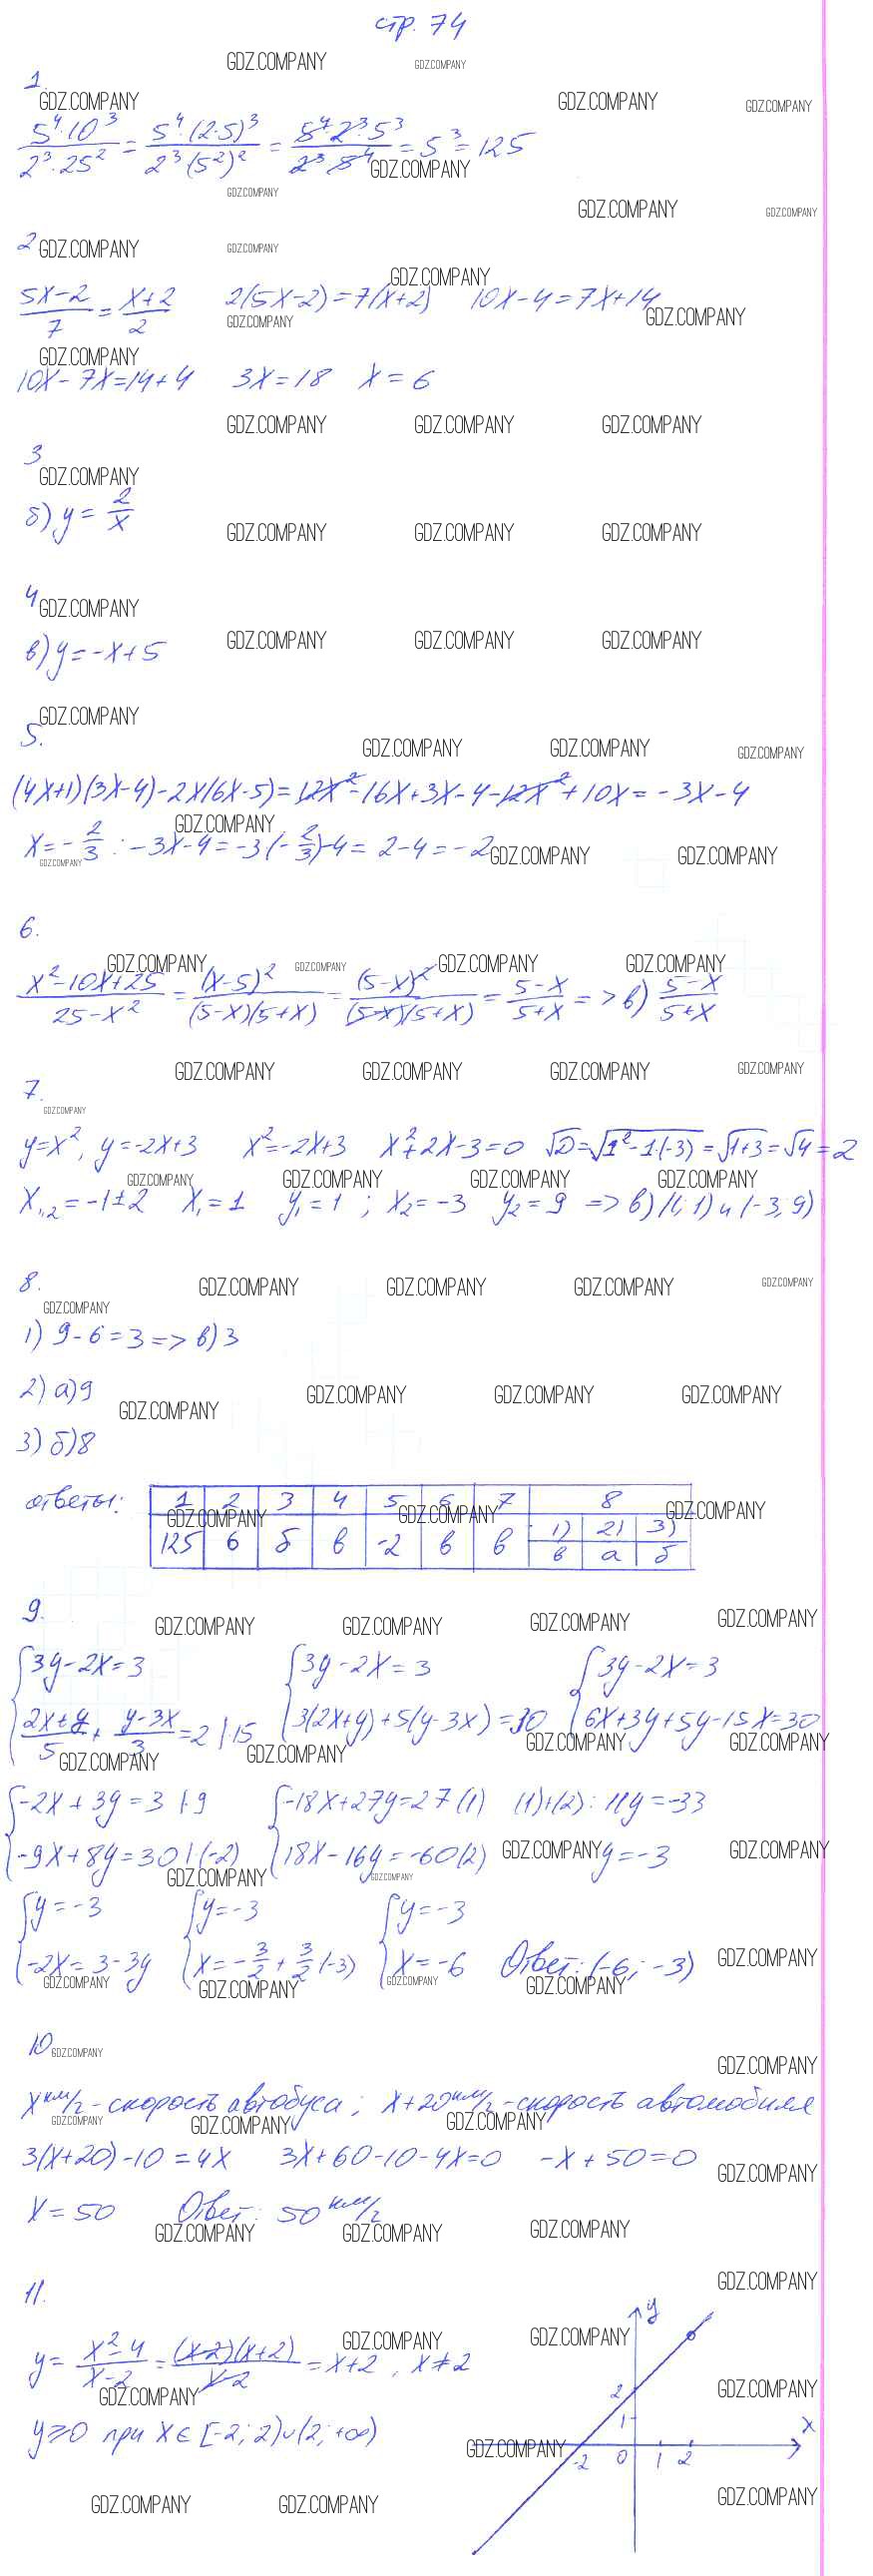 стр. 74
1.
5⁴·10³/2³·25² = 5⁴·(2·5)³/2³(5²)² = 5⁴·2³·5³/2³·5⁴ = 5³ = 125
2
5x-2/7 = x+2/2   2(5x-2)=7(x+2)   10x-4=7x+14
10x-7x=14+4   3x=18   x=6
3
б) y = 2/x
4
в) y=-x+5
5.
(4x+1)(3x-4)-2x(6x-5)=12x²-16x+3x-4-12x²+10x=-3x-4
x=-2/3 : -3x-4=-3(-2/3)-4=2-4=-2
6.
x²-10x+25/25-x² = (x-5)²/(5-x)(5+x) = (5-x)²/(5-x)(5+x) = 5-x/5+x => в) 5-x/5+x
7.
y=x², y=-2x+3   x²=-2x+3   x²+2x-3=0   √D=√1²-1·(-3)=√1+3=√4=2
x₁,₂=-1±2   x₁=1   y₁=1 ; x₂=-3   y₂=9 => в) (1; 1) и (-3, 9)
8.
1) 9-6=3 => в) 3
2) а) 9
3) б) 8
ответы:
1 2 3 4 5 6 7 8
1) 2) 3)
125 6 б в -2 в в
в а б
9.
{3y-2x=3   {3y-2x=3   {3y-2x=3
2x+y/5 + y-3x/3 =2 |·15   3(2x+y)+5(y-3x)=30   6x+3y+5y-15x=30
{-2x+3y=3 |·9   {-18x+27y=27 (1)   (1)+(2): 11y=-33
-9x+8y=30 |·(-2)   18x-16y=-60 (2)   y=-3
{y=-3   {y=-3   {y=-3
-2x=3-3y   x=-3/2+3/2(-3)   x=-6   Ответ: (-6; -3)
10
x км/г - скорость автобуса ; x+20 км/г - скорость автомобиля
3(x+20)-10=4x   3x+60-10-4x=0   -x+50=0
x=50   Ответ: 50 км/г
11.
y = x²-4/x-2 = (x-2)(x+2)/x-2 = x+2 , x≠2
y≥0 при x∈[-2; 2)∪(2; +∞)
y
2
1
x
-2 0 1 2
GDZ.COMPANY